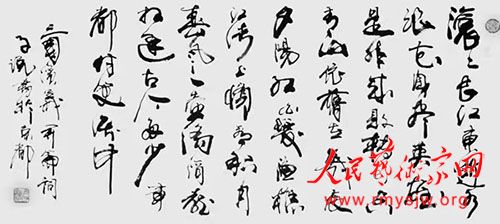 滚々长江东逝水
浪花淘尽英雄
是非成败转头空
青山依旧在几度
夕阳红白发渔樵
江渚上惯看秋月
春风一壶浊酒喜
相逢古今多少事
都付笑谈中
三国演义开篇词
书于京都
人民艺术家网
www.rmysjw.com